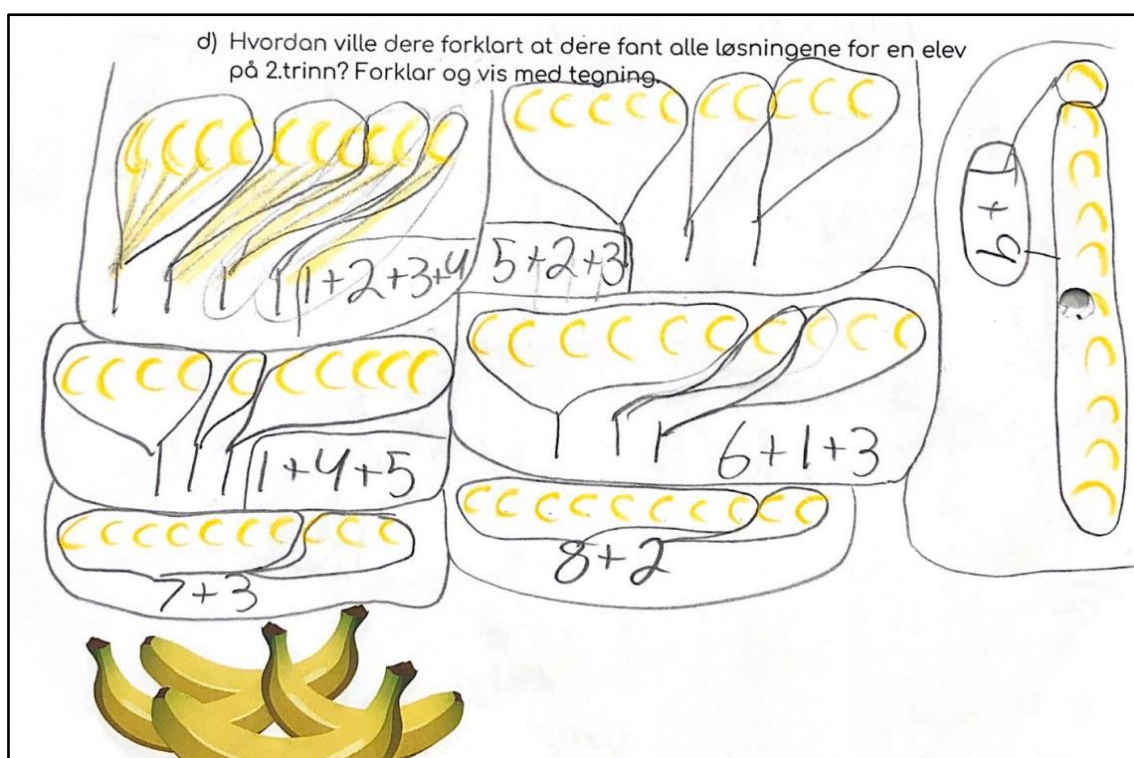 d) Hvordan ville dere forklart at dere fant alle løsningene for en elev
på 2.trinn? Forklar og vis med tegning.
1+2+3+4
5+2+3
1+9
1+4+5
6+1+3
7+3
8+2